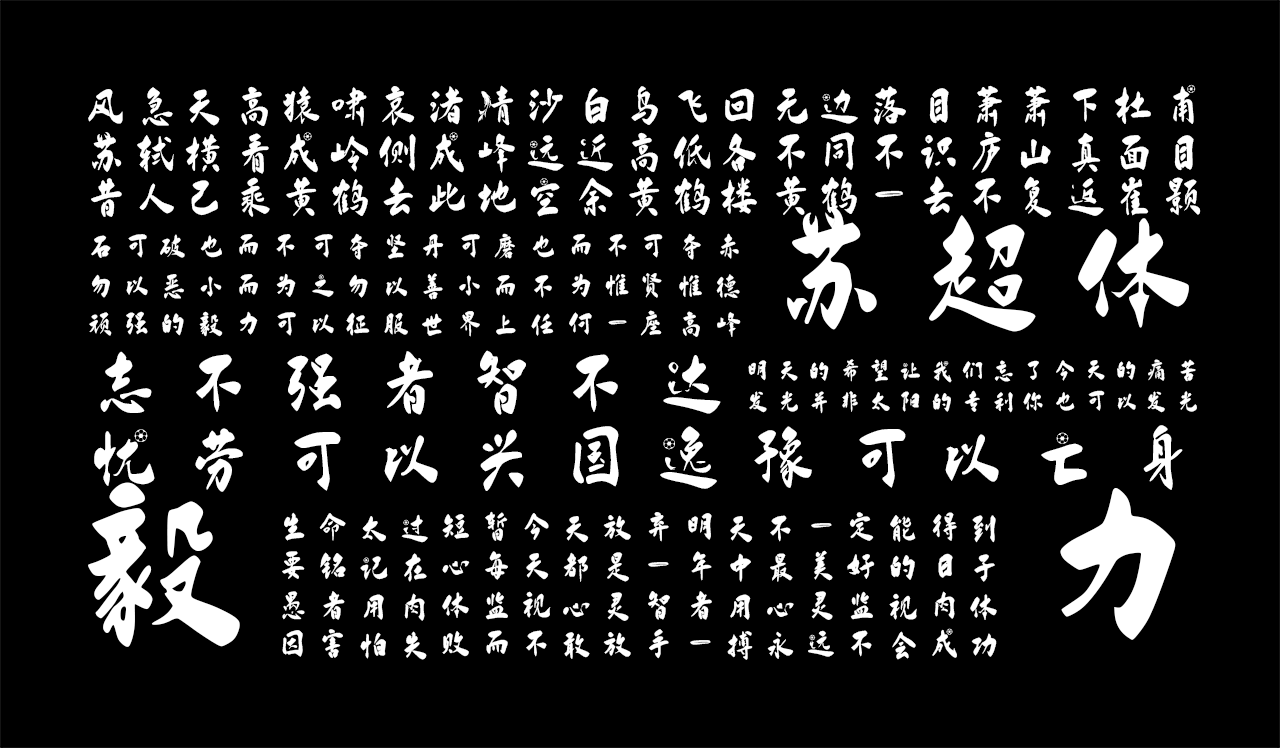 风急天高猿啸哀渚清沙白鸟飞回元边落目萧萧下杜甫
苏轼横看成岭侧成峰远近高低各不同不识庐山真面目
昔人已乘黄鹤去此地空余黄鹤楼黄鹤一去不复返崔颢
石可破也而不可夺坚丹可磨也而不可夺赤
勿以恶小而为之勿以善小而不为惟贤惟德
顽强的毅力可以征服世界上任何一座高峰
苏超体
志不强者智不达
明天的希望让我们忘了今天的痛苦
发光并非太阳的专利你也可以发光
忧劳可以兴国逸豫可以亡身
毅力
生命太过短暂今天放弃明天不一定能得到
要铭记在心每天都是一年中最美好的日子
愚者用肉体监视心灵智者用心灵监视肉体
因害怕失败而不敢放手一搏永远不会成功